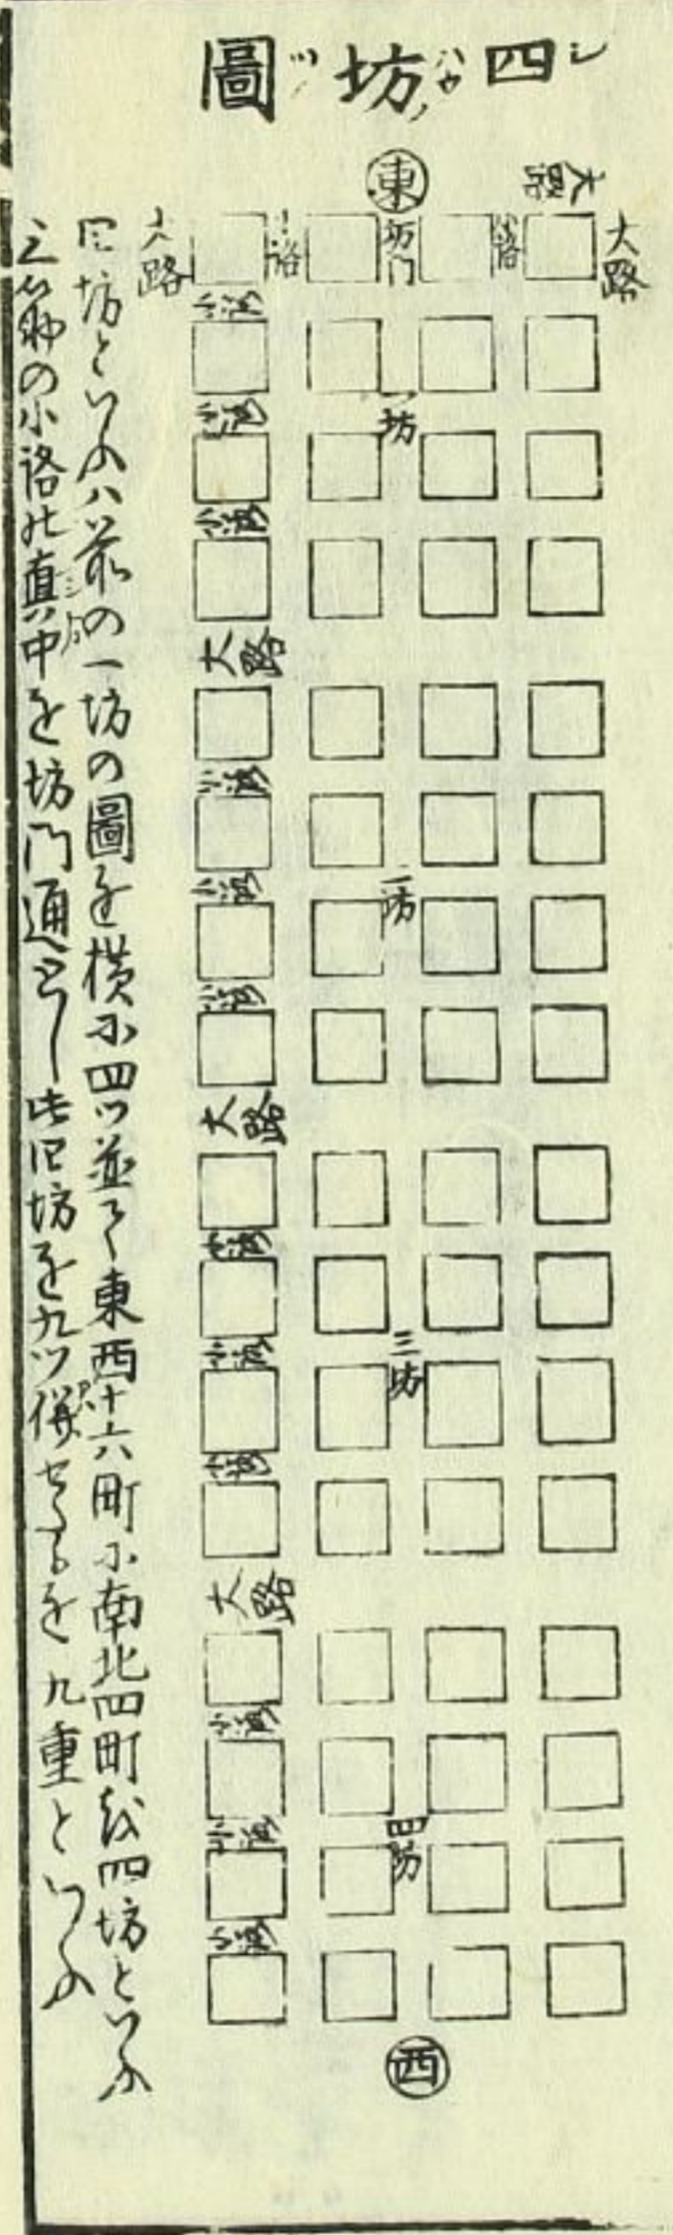 四坊圖
シ ハウ ノ ツ
東
大路
大路 小路 坊門 小路 大路
小路
一坊
小路
小路
大路
小路
二坊
小路
小路
大路
小路
三坊
小路
小路
大路
小路
四坊
小路
小路
西
四坊といふハ前の一坊の圖を横に四ツ並て東西十六町に南北四町を四坊といふ
の小路の真中を坊門通とし此四坊を九ツ併せたるを九重といふ